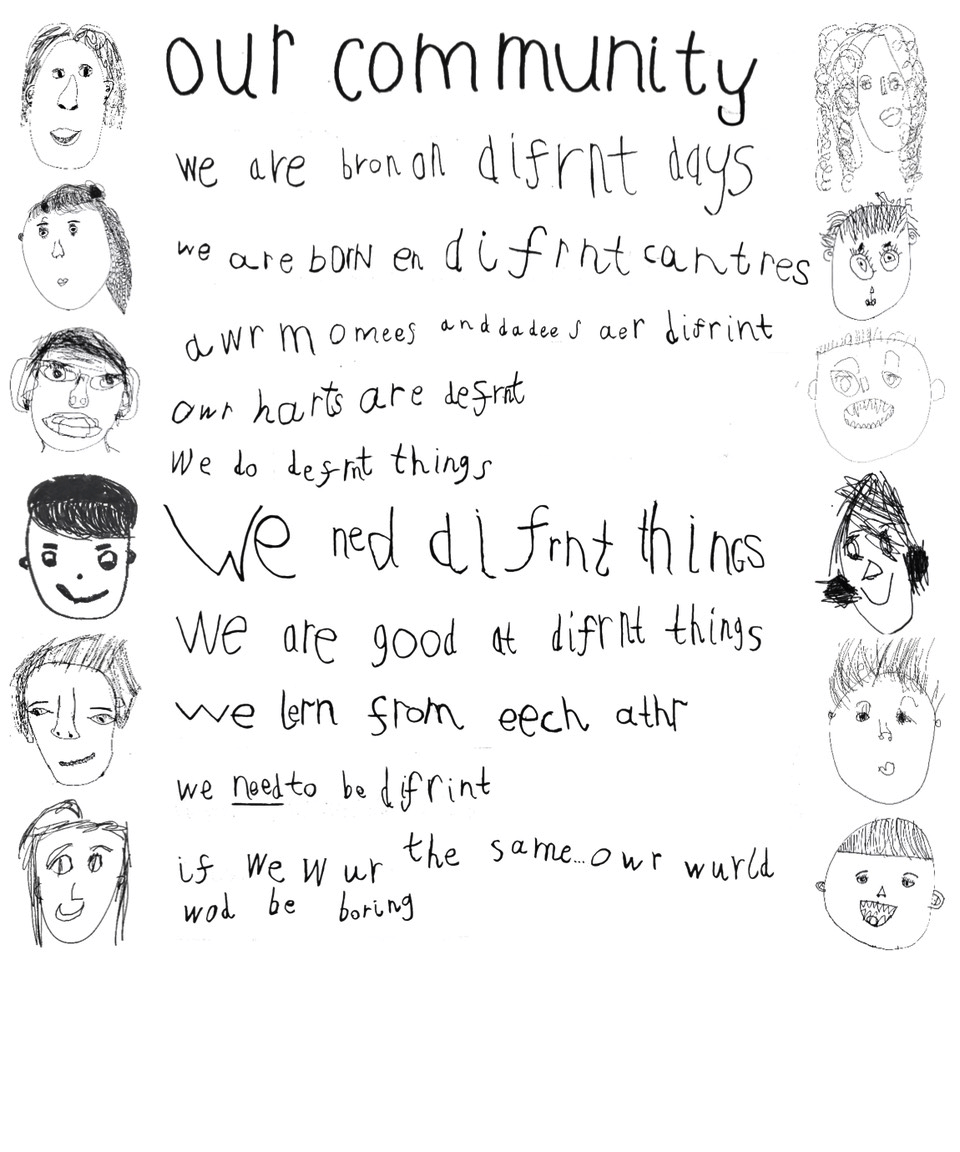 our community
we are bron on difrnt days
we are bORN en difrnt cantres
awr momees and dadees aer difrint
owr harts are defrnt
We do defrnt things
We ned difrnt things
We are good at difrnt things
we lern from eech athr
we need to be difrint
if we wur the same...owr wurld
wod be boring